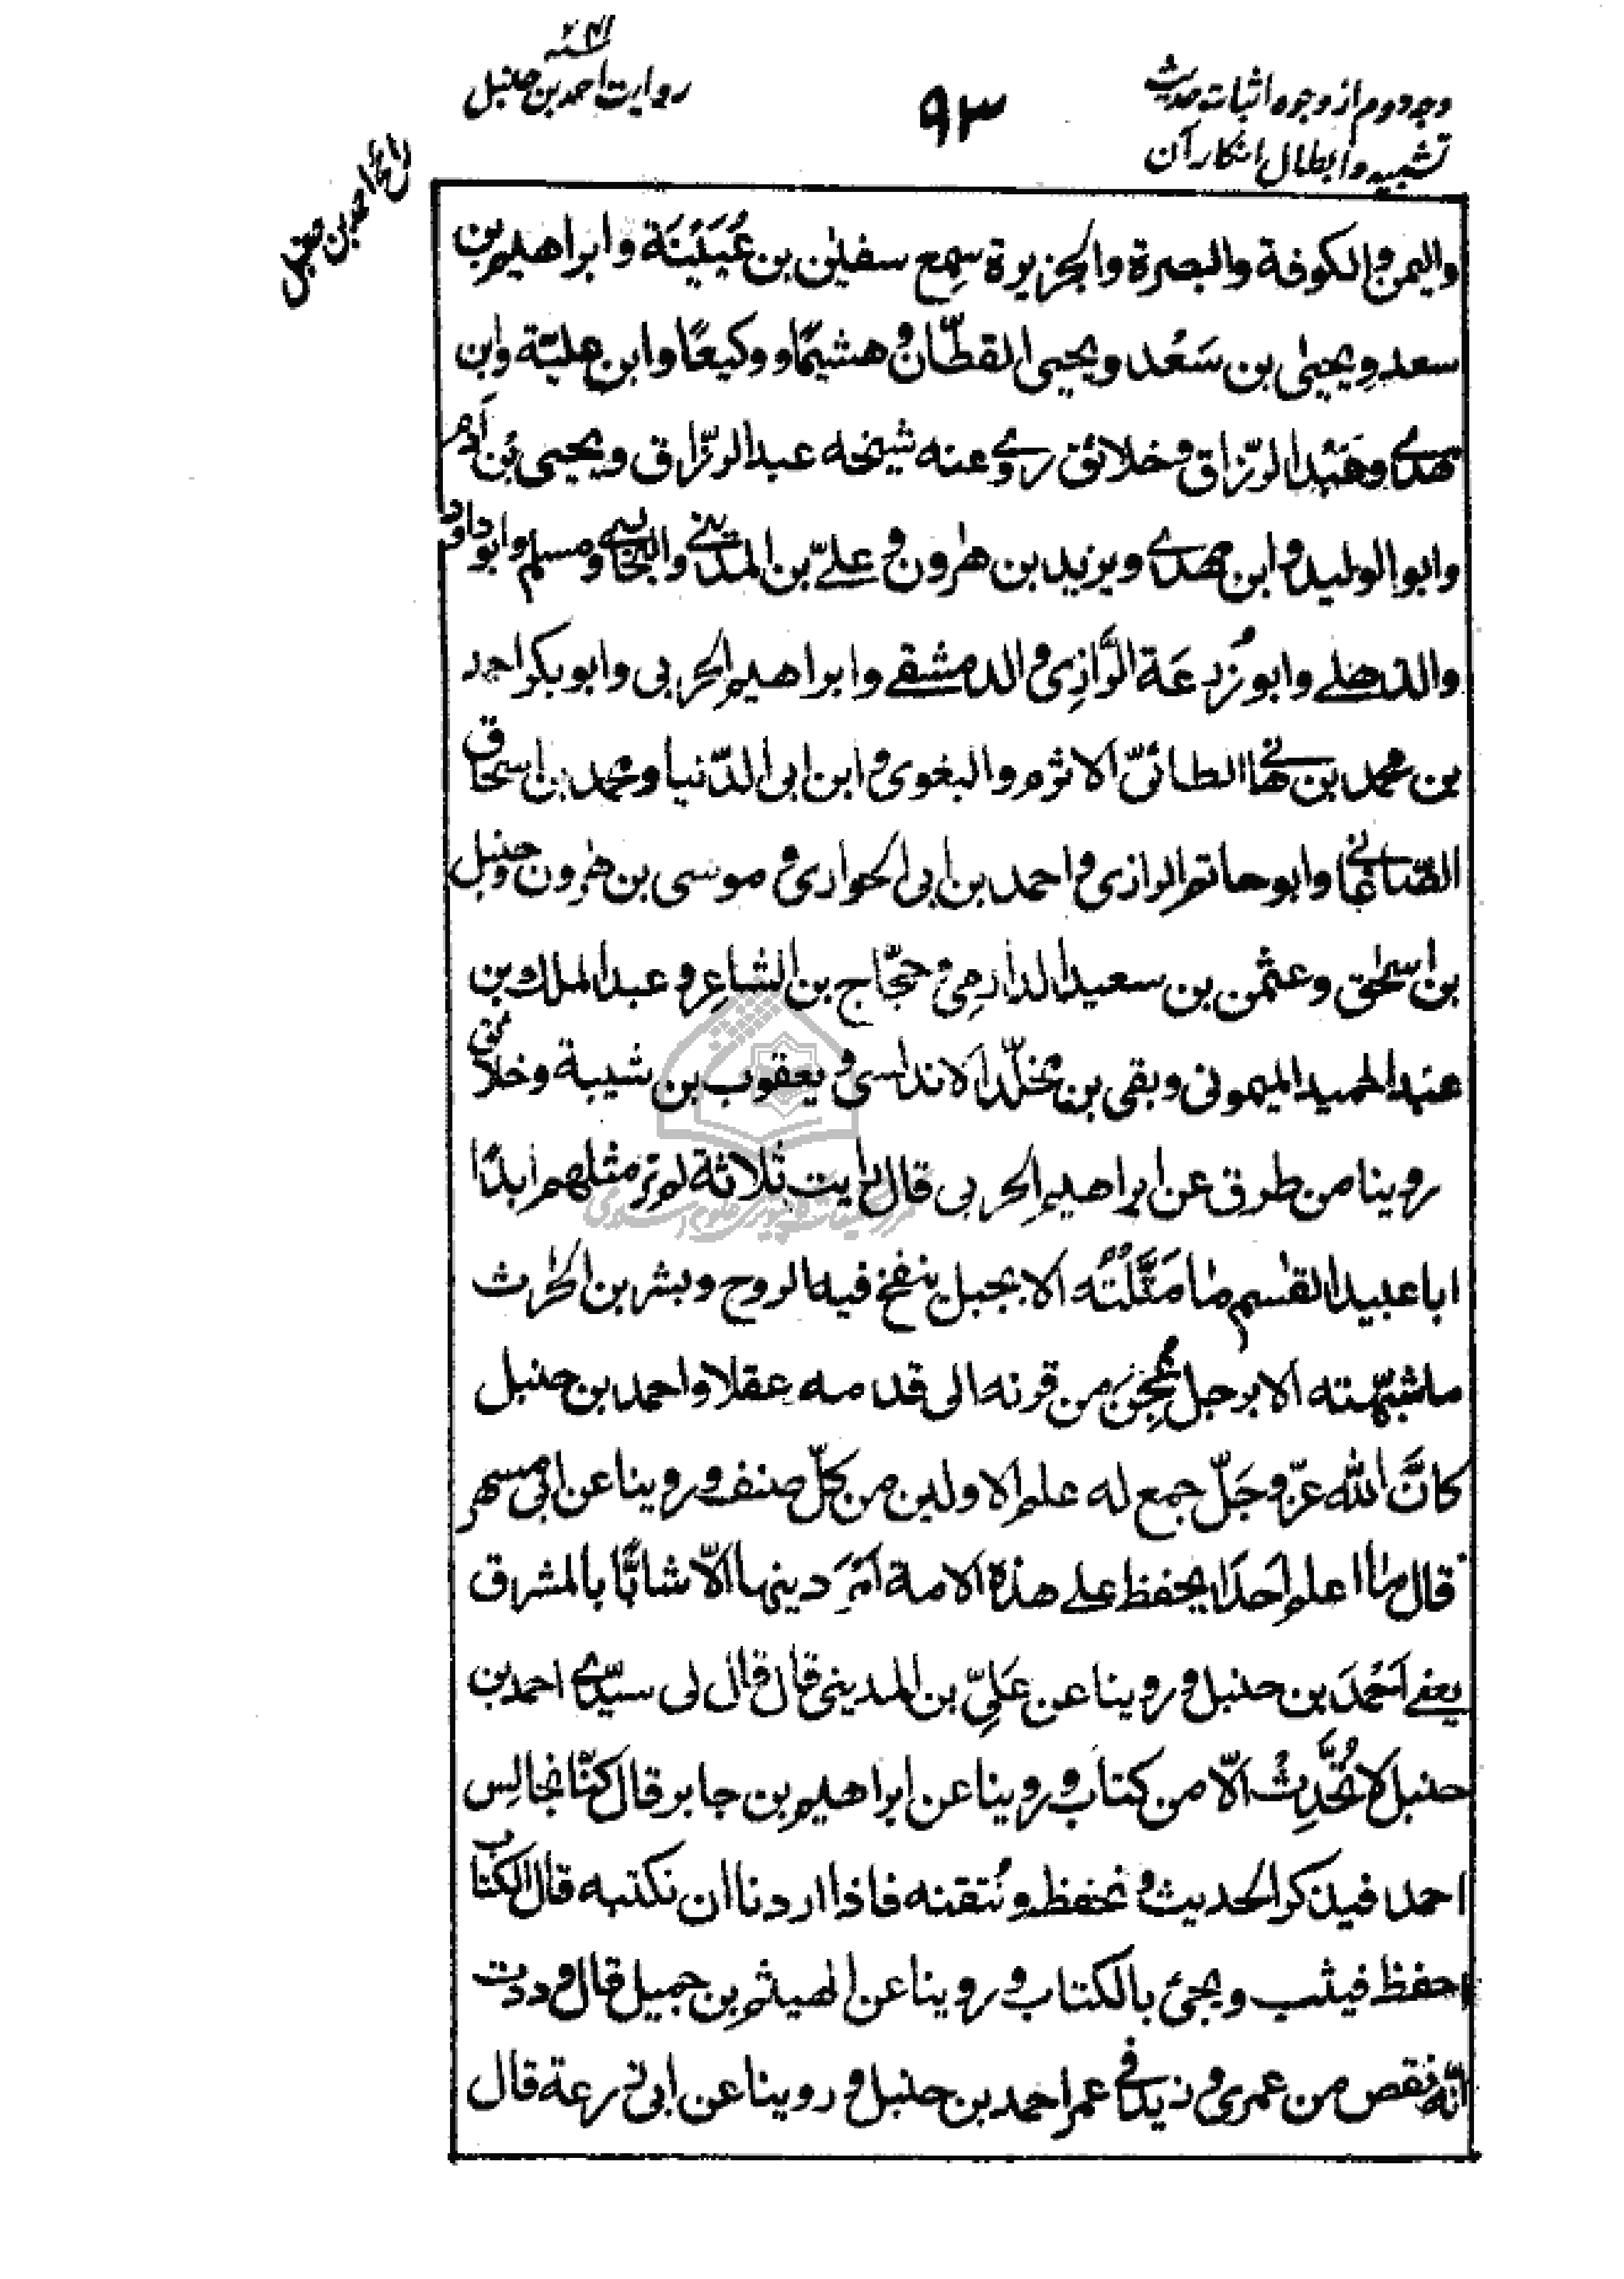 وجه دوم از وجوه اثبات حدیث
تشبیه و ابطال انکار آن
۹۳
سنه ۲۴۱
روایت احمد بن حنبل
احمد بن حنبل
والیمن والکوفة والبصرة والجزیرة سمع سفیٰن بن عُیَیْنَة وابراهیم بن
سعد ویحییٰ بن سَعْد ویحیی القطّان وهشیمًا ووکیعًا وابن علیّة وابن
مهدے وعَبْد الرّزاق وخلائق روے عنه شیخه عبد الرّزاق ویحیی بْن اٰدم
وابو الولید وابن مهدے ویزید بن هٰرون وعلےّ بن المَدینے والبخارے ومسلم وابو داود
والذهلے وابو زُرعَة الرَّازِی والدمشقے وابراهیم الحربی وابو بکر احمد
بن محمد بن هانے الطائیّ الاثرم والبغوی وابن ابی الدّنیا ومحمد بن اسحاق
الصّاغانے وابو حاتم الرازی واحمد بن ابی الحواری وموسی بن هٰرون وحنبل
بن اسحٰق وعثمٰن بن سعید الدارمی وحجّاج بن الشاعر وعبد الملك بن
عبد الحمید المیمونی وبقی بن مخلّد الاندلسی ویعقوب بن شیبة وخلائق
روینا من طرق عن ابراهیم الحربی قال رایت ثلاثة لم تر مثلهم ابدًا
ابا عبید القٰسم ما مَثَّلْتُه الا بجبل ینفخ فیه الروح وبشر بن الحٰرث
ما شبّهته الا برجل عُجِنَ من قرنه الی قدمه عقلا واحمد بن حنبل
کانَّ الله عزّ وجَلّ جمع له علم الاولین من کلّ صنف وروینا عن ابی مسهر
قال ما اعلم اَحَدًا یحفظ علے هذه الامة اَمْرَ دینها الّا شابًّا بالمشرق
یعنے اَحْمَدَ بن حنبل وروینا عن عَلِیّ بن المدینی قال قال لی سیّدے احمد بن
حنبل لا تُحَدِّثْ الّا من کتاب وروینا عن ابراهیم بن جابر قال کنّا نجالس
احمد فیذکر الحدیث ونحفظه ونُتقنه فاذا اردنا ان نکتبه قال الکتاب
احفظ فیثب ویجئ بالکتاب وروینا عن الهیثم بن جمیل قال وددت
انّه نقص من عمری وزید فے عمر احمد بن حنبل وروینا عن ابی زرعة قال